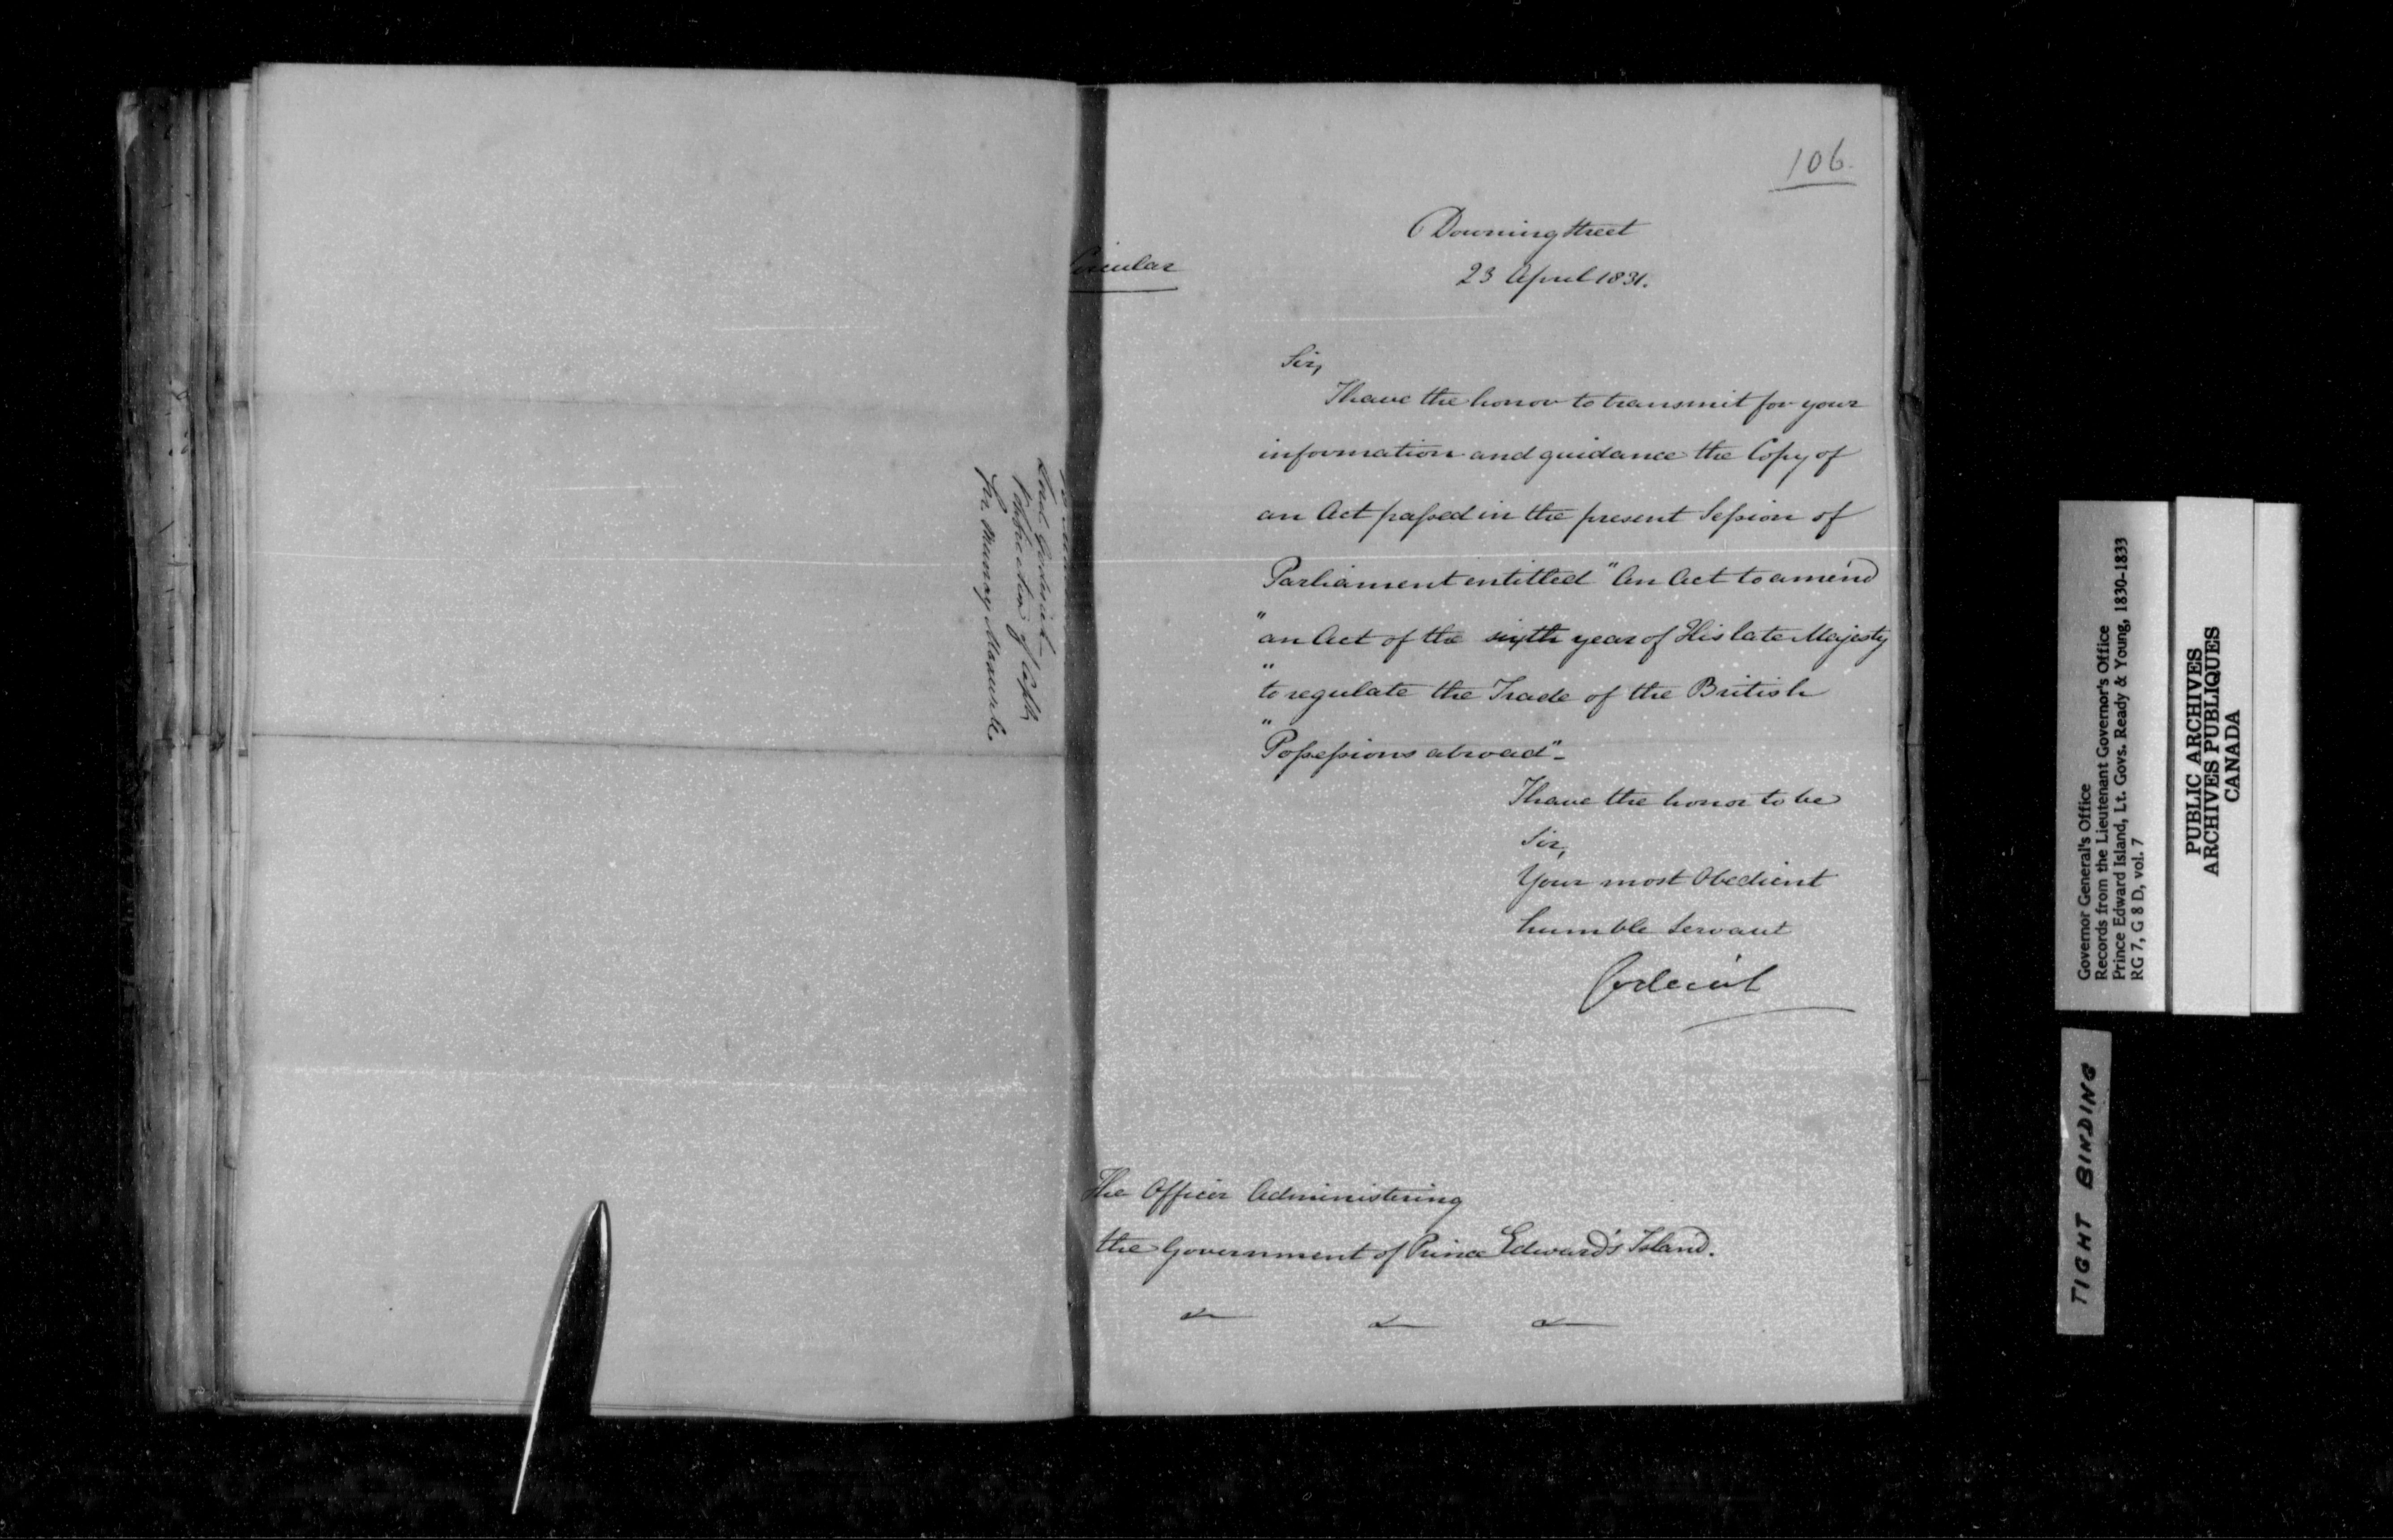 Lord Goderich
of Capt.
Murray Maxwell.
106.
Circular
Downing Street
23 April 1831.
Sir,
I have the honor to transmit for your
information and guidance the Copy of
an Act passed in the present Session of
Parliament entitled "An Act to amend
"an Act of the sixth year of His late Majesty
"to regulate the Trade of the British
"Possessions abroad"_
I have the honor to be
Sir,
Your most Obedient
humble Servant
Goderich
The Officer Administering
the Government of Prince Edward's Island.
Governor General's Office
Records from the Lieutenant Governor's Office
Prince Edward Island, Lt. Govs. Ready & Young, 1830-1833
RG 7, G 8 D, vol. 7
PUBLIC ARCHIVES
ARCHIVES PUBLIQUES
CANADA
TIGHT BINDING